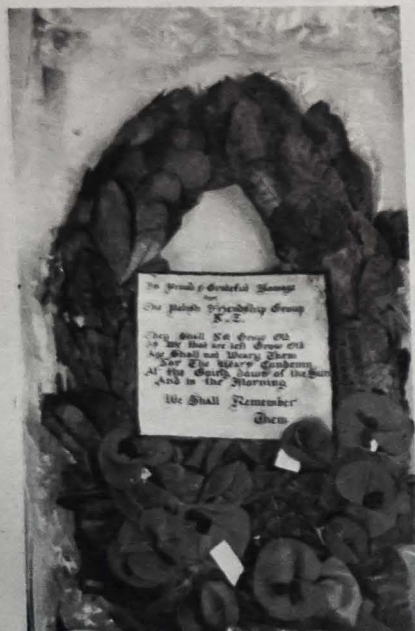 In Proud & Grateful Homage
The Friendship Group
They Shall Not Grow Old
As We that are left Grow Old
Age Shall not Weary Them
Nor The Years Condemn
At the Going down of the Sun
And in the Morning
We Shall Remember
Them